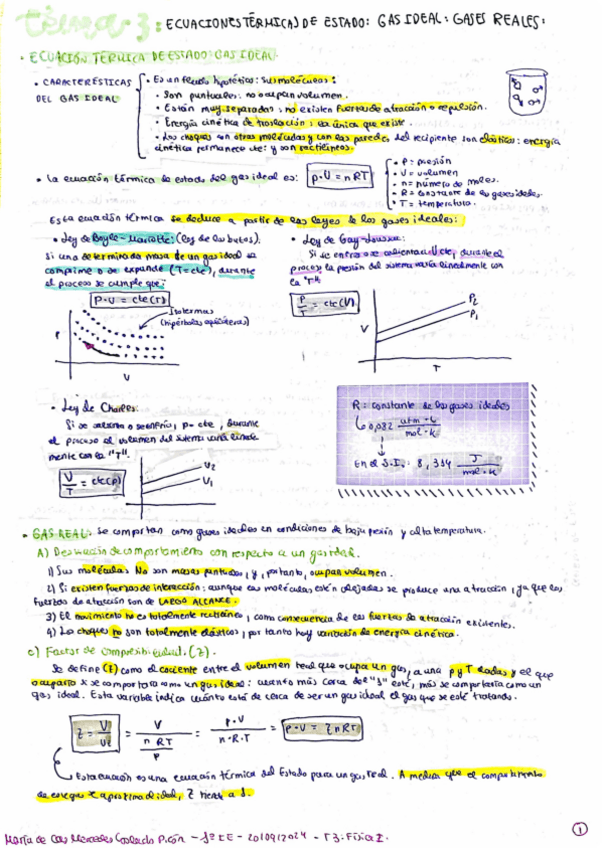 tema 3: ECUACIONES TÉRMICAS DE ESTADO: GAS IDEAL: GASES REALES:
• ECUACIÓN TÉRMICA DE ESTADO: GAS IDEAL.
• CARACTERÍSTICAS DEL GAS IDEAL
• Es un fluido hipotético: sus moléculas:
• Son puntuales: no ocupan volumen.
• Están muy separadas: no existen fuerzas de atracción o repulsión.
• Energía cinética de traslación: la única que existe.
• Los choques con otras moléculas y con las paredes del recipiente son elásticos: energía
cinética permanece cte: y son rectilíneos.
• La ecuación térmica de estado del gas ideal es: p·V = nRT
• P = presión
• V = volumen
• n = número de moles.
• R = constante de los gases ideales
• T = temperatura.
Esta ecuación térmica se deduce a partir de las leyes de los gases ideales:
• Ley de Boyle-Mariotte: (ley de las
Si una determinada masa de un gas ideal se
comprime o se expande (T=cte), durante
el proceso se cumple que:
P·V = cte(T)
Isotermas
(hipérbolas equiláteras)
P
V
• Ley de Gay-Lussac:
Si se enfría o se calienta a V cte, durante el
proceso la presión del sistema varía linealmente con
la "T".
P/T = cte(V)
V
P2
P1
T
• Ley de Charles:
Si se calienta o se enfría, p = cte, durante
el proceso el volumen del sistema varía lineal-
mente con la "T".
V/T = cte(p)
V2
V1
R = constante de los gases ideales
0,082 atm·L / mol·K
En el S.I.: 8,314 J / mol·K
• GAS REAL: Se comportan como gases ideales en condiciones de baja presión y alta temperatura.
A) Desviación de comportamiento con respecto a un gas ideal.
1) Sus moléculas No son masas puntuales, y, por tanto, ocupan volumen.
2) Si existen fuerzas de interacción: aunque las moléculas estén alejadas se produce una atracción, ya que las
fuerzas de atracción son de LARGO ALCANCE.
3) El movimiento no es totalmente rectilíneo, como consecuencia de las fuerzas de atracción existentes.
4) Los choques no son totalmente elásticos; por tanto hay variación de energía cinética.
c) Factor de compresibilidad. (Z).
Se define (Z) como el cociente entre el volumen real que ocupa un gas, a una p y T dadas y el que
ocuparía si se comportara como un gas ideal: cuanto más cerca del "1" esté, más se comportaría como un
gas ideal. Esta variable indica cuánto está de cerca de ser un gas ideal el gas que se esté tratando.
Z = V/Vi = V / (nRT/P) = p·V / n·R·T = p·V = ZnRT
Esta ecuación es una ecuación térmica del Estado para un gas real. A medida que el comportamiento
de ese gas se aproxima al ideal, Z tiende a 1.
1
María de las Mercedes - 1º - 20/09/2024 - T3. Física I.